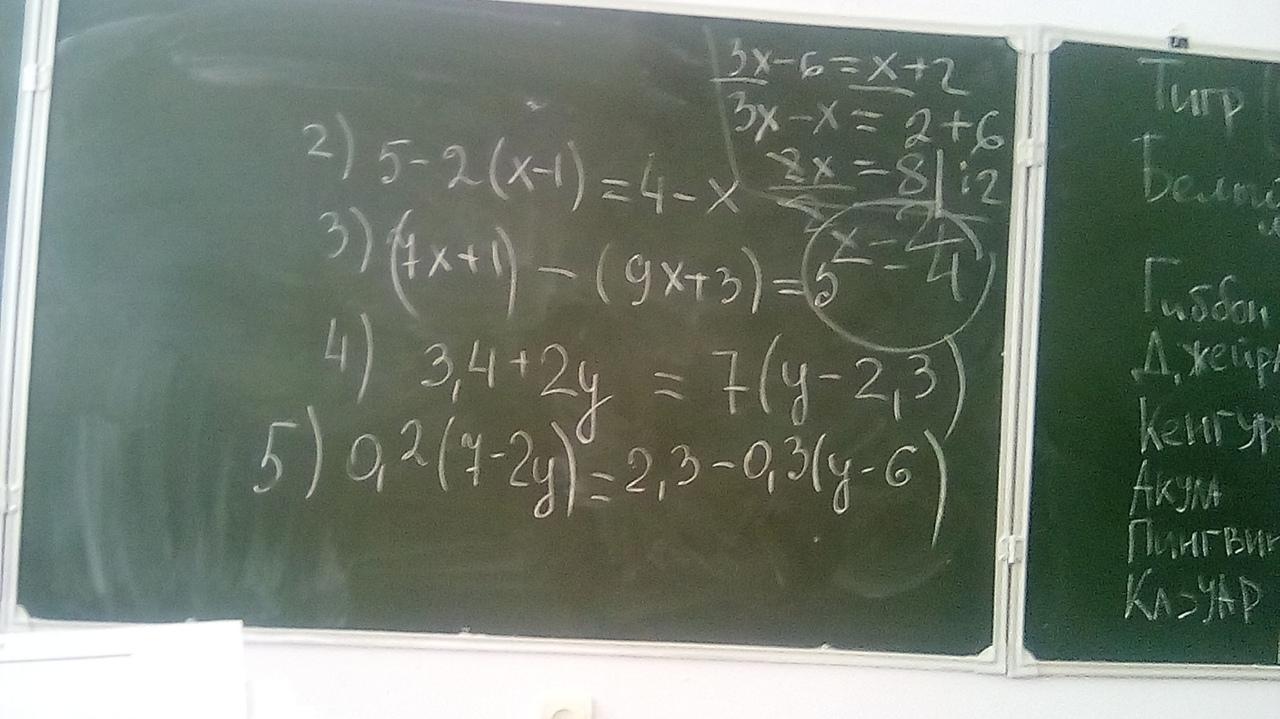 3x-6=x+2
3x-x=2+6
2x=8|:2
2) 5-2(x-1)=4-x
3) (7x+1)-(9x+3)=5
4) 3,4+2y=7(y-2,3)
5) 0,2(7-2y)=2,3-0,3(y-6)
Тигр
Гиббон
Кенгур
Акула
Пингвин
Казуар